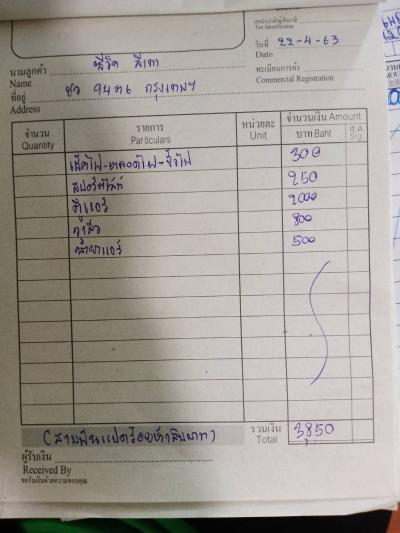 เลขประจำตัวผู้เสียภาษี
Tax Identification
วันที่ 22-4-63
Date
นามลูกค้า ซีวิค สีเทา
Name
ทะเบียนการค้า
Commercial Registration
ที่อยู่ ชว 9476 กรุงเทพฯ
Address
จำนวน รายการ หน่วยละ จำนวนเงิน Amount
Quantity Particulars Unit บาท Baht ส.ต. Stg.
เช็คไฟ-หลอดไฟ-ขั้วไฟ 300
สปอร์ตไลท์ 250
ตู้แอร์ 2000
วาล์ว 800
น้ำยาแอร์ 500
(สามพันแปดร้อยห้าสิบบาท) รวมเงิน 3,850
Total
ผู้รับเงิน
Received By
ขอรับเงินด้วยความขอบคุณ